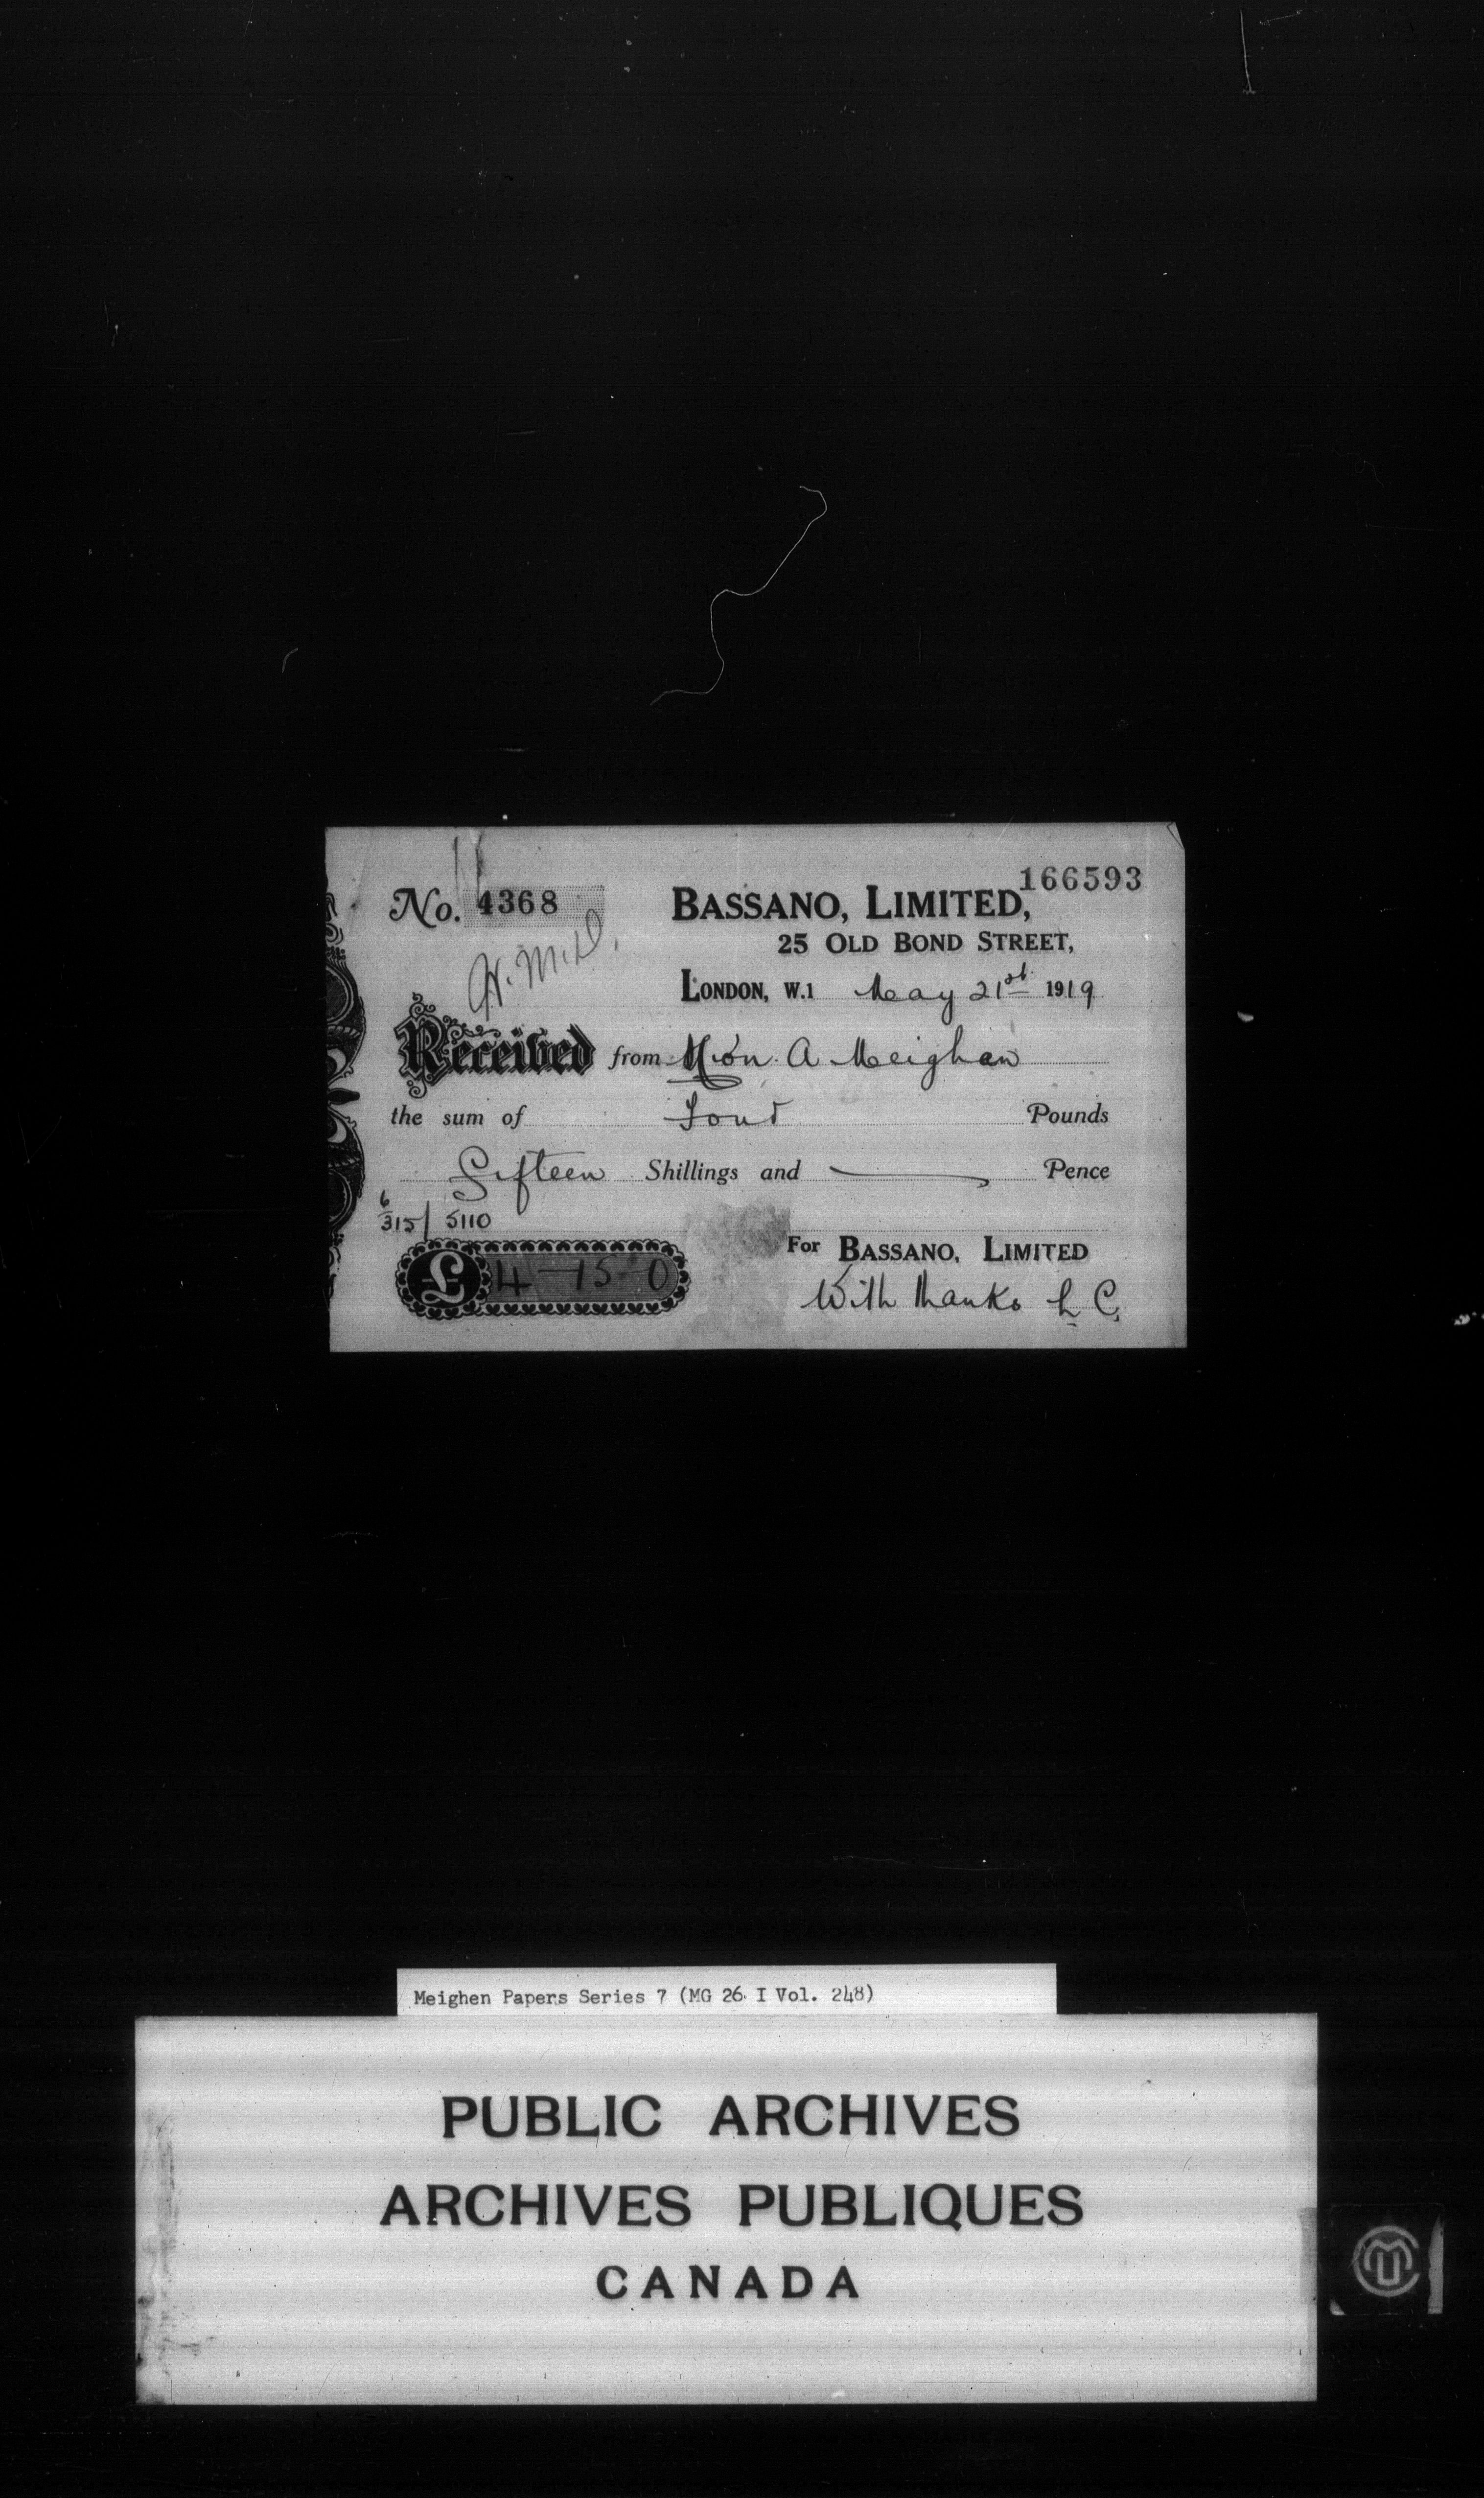 166593
No. 4368
BASSANO, LIMITED,
25 OLD BOND STREET,
LONDON, W.1 May 21st 1919
Received from Hon. A Meighan
the sum of Four Pounds
Fifteen Shillings and — Pence
6
315/ 5110
£ 4-15-0
For BASSANO, LIMITED
With thanks L C
Meighen Papers Series 7 (MG 26 I Vol. 248)
PUBLIC ARCHIVES
ARCHIVES PUBLIQUES
CANADA